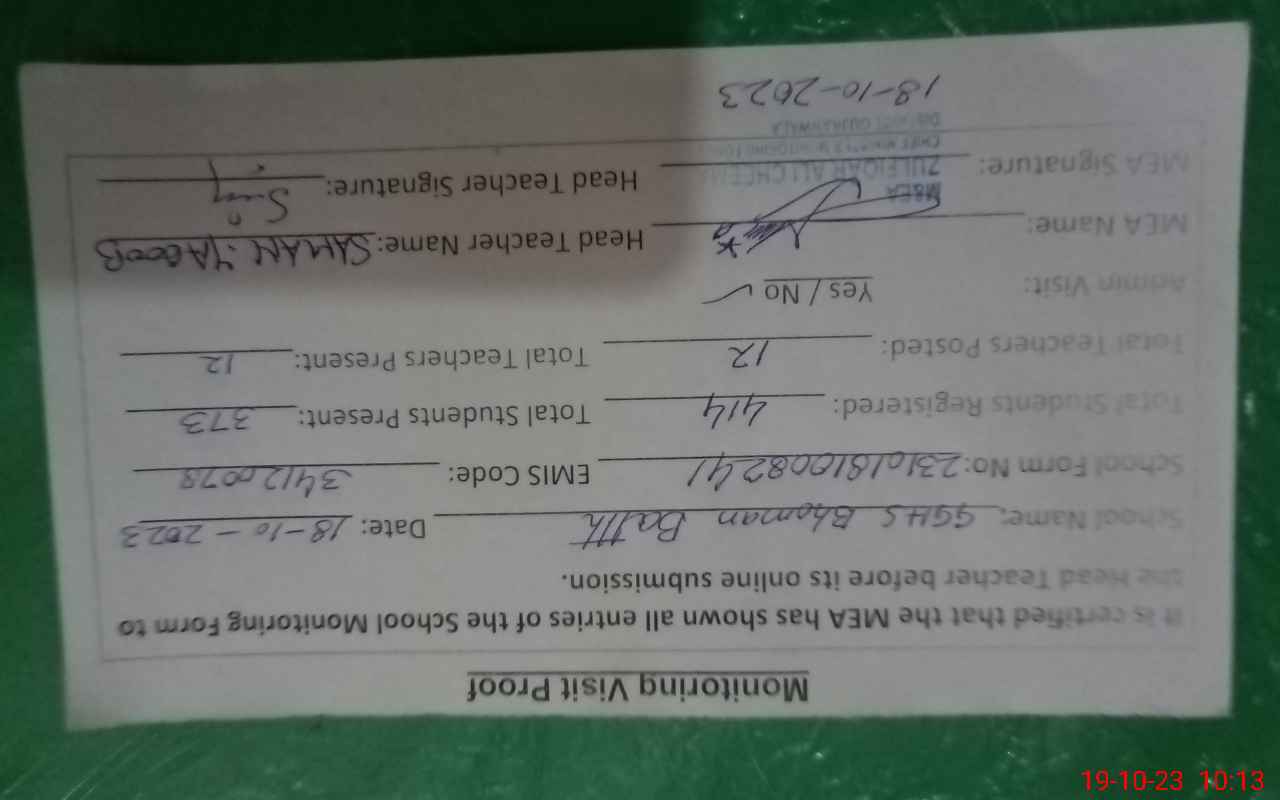 Monitoring Visit Proof
It is certified that the MEA has shown all entries of the School Monitoring Form to
the Head Teacher before its online submission.
School Name: GGHS Bhoman Batth Date: 18-10-2023
School Form No: 2310181008241 EMIS Code: 34120078
Total Students Registered: 414 Total Students Present: 373
Total Teachers Posted: 12 Total Teachers Present: 12
Admin Visit: Yes / No ✓
MEA Name: Head Teacher Name: SAMAN YAQOOB
M&EA
MEA Signature: Head Teacher Signature:
ZULFIQAR ALI CHEEMA
DISTRICT GUJRANWALA
18-10-2023
19-10-23 10:13